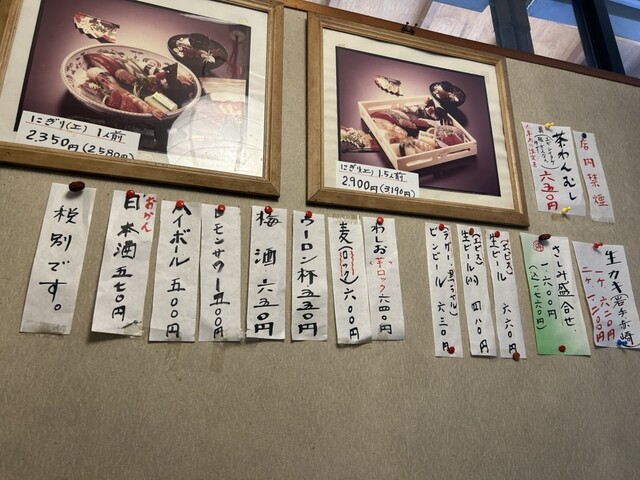 にぎり(エ) 1人前
2.350円(2580円)
にぎり(エ) 1.5人前
2.900円(3190円)
茶わんむし
六五〇円
店内禁煙
生カキ 岩手赤崎
一ケ 六二〇円
二ケ 一、二〇〇円
さしみ盛合せ
一、六〇〇円
(一、七六〇円)
(ヱビス)
生ビール 六六〇円
生ビール(小) 四八〇円
ビンビール 六三〇円
わしお
芋ロック 六四〇円
麦(ロック) 六〇〇円
ウーロン杯 五五〇円
梅酒 六五〇円
レモンサワー 五〇〇円
ハイボール 五〇〇円
おかん
日本酒 五七〇円
税別です。